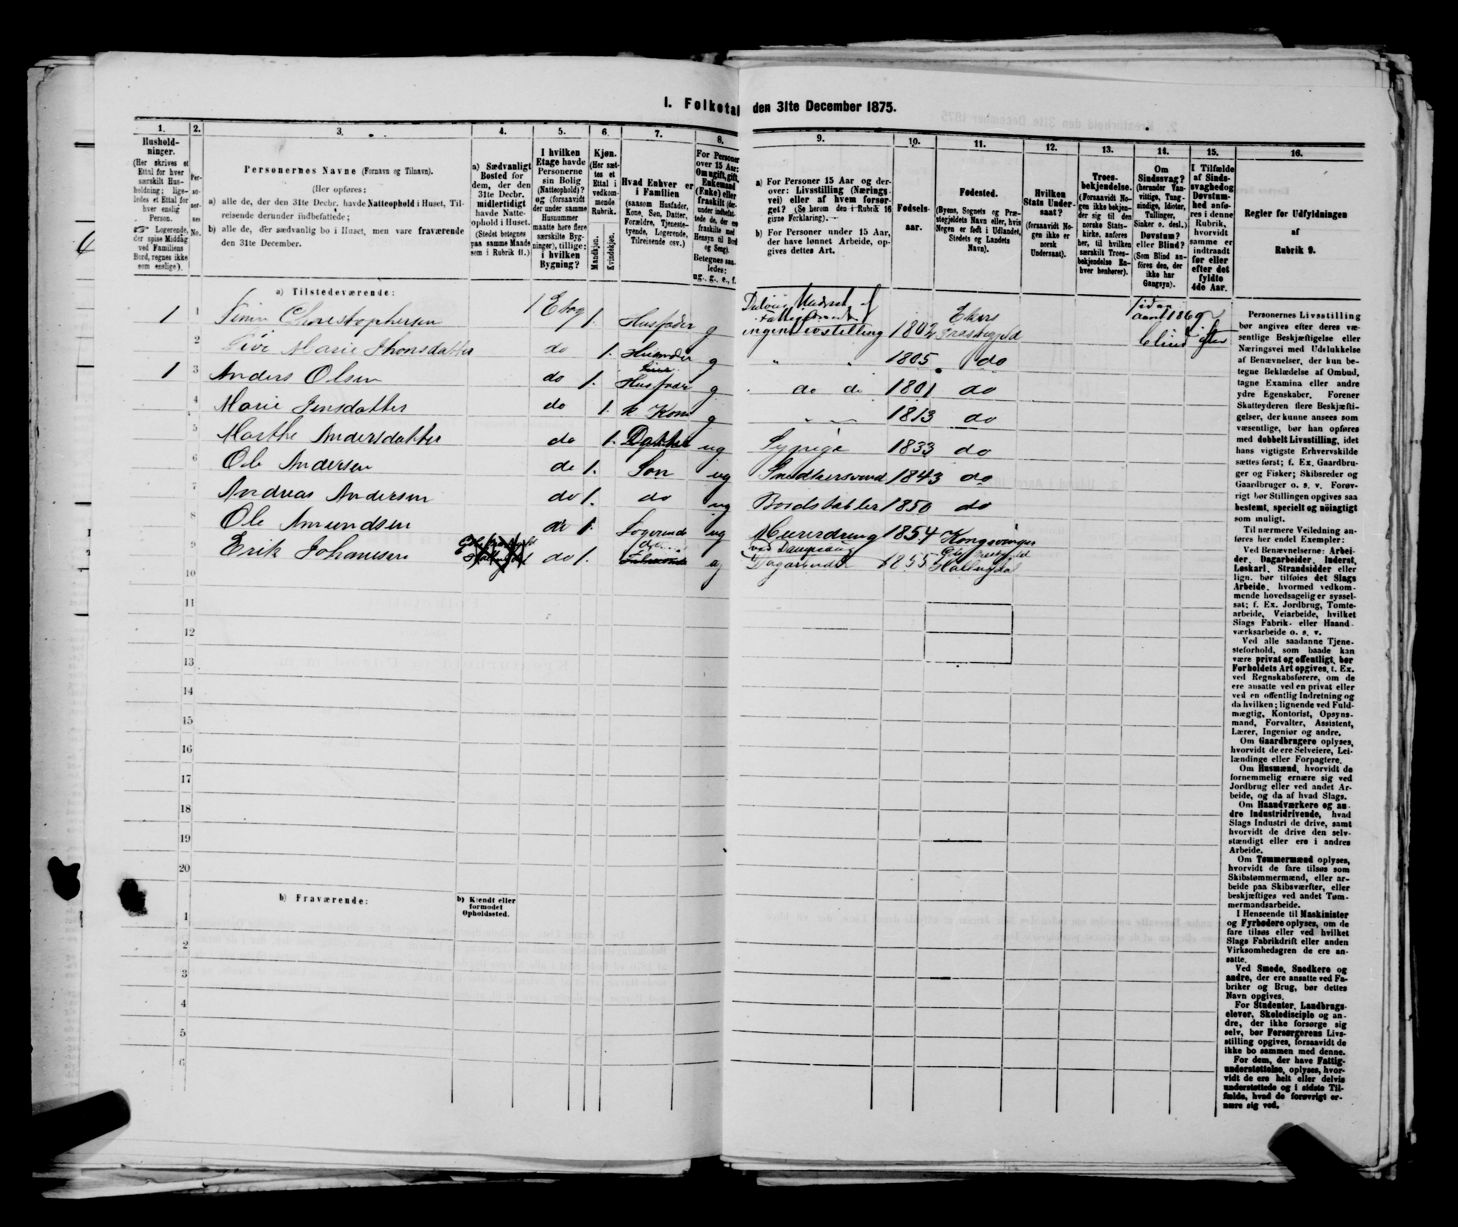 I. Folketal den 31te December 1875.
1. 2. 3. 4. 5. 6. 7. 8. 9. 10. 11. 12. 13. 14. 15. 16.
Hushold-
ninger.
(Her skrives et
Ettal for hver
særskilt Hus-
holdning; lige-
ledes et Ettal for
hver enslig
Person.
Logerende,
der spise Middag
ved Familiens
Bord, regnes ikke
som enslige).
Per-
so-
ner-
nes
No.
Personernes Navne (Fornavn og Tilnavn).
(Her opføres:
a) alle de, der den 31te Decbr. havde Natteophold i Huset, Til-
reisende derunder indbefattede;
b) alle de, der sædvanlig bo i Huset, men vare fraværende
den 31te December.
a) Sædvanligt
Bosted for
dem, der den
31te Decbr.
midlertidigt
havde Natte-
ophold i Huset.
(Stedet betegnes
paa samme Maade
som i Rubrik 11.)
I hvilken
Etage havde
Personerne
sin Bolig
(Natteophold)?
og (forsaavidt
der under samme
Husnummer
maatte høre flere
særskilte Byg-
ninger), tillige:
i hvilken
Bygning?
Kjøn.
(Her sæt-
tes et
Ettal i
vedkom-
mende
Rubrik.
Mandkjøn.
Kvindekjøn.
Hvad Enhver er
i Familien
(saasom Husfader,
Kone, Søn, Datter,
Forældre, Tjeneste-
tyende, Logerende,
Tilreisende osv.)
For Personer
over 15 Aar:
Om ugift, gift,
Enkemand
(Enke) eller
fraskilt
Betegnes saa-
ledes:
ug., g., e., f.
a) For Personer 15 Aar og der-
over: Livsstilling (Nærings-
vei) eller af hvem forsør-
get? (Se herom den i Rubrik 16
givne Forklaring).
b) For Personer under 15 Aar,
der have lønnet Arbeide, op-
gives dettes Art.
Fødsels-
aar.
Fødested.
(Byens, Sognets og Præ-
stegjeldets Navn eller, hvis
Nogen er født i Udlandet,
Stedets og Landets
Navn).
Hvilken
Stats Under-
saat?
(forsaavidt No-
gen ikke er
norsk
Undersaat).
Troes-
bekjendelse.
(Forsaavidt No-
gen ikke bekjen-
der sig til den
norske Stats-
kirke, anføres
her, til hvilken
særskilt Troes-
bekjendelse En-
hver henhører).
Om
Sindssvag?
(herunder Van-
vittige, Tung-
sindige, Idioter,
Tullinger,
Sinker o. desl.)
Døvstum?
eller Blind?
(Som Blind an-
føres den, der
ikke har
Gangsyn).
I Tilfælde
af Sinds-
svaghed og
Døvstum-
hed anfø-
res i denne
Rubrik,
hvorvidt
samme er
indtraadt
før eller
efter det
fyldte
4de Aar.
Regler for Udfyldningen
af
Rubrik 9.
a) Tilstedeværende:
1 1 Simen Christophersen 1 Etag 1. Husfader g ingen Livsstilling 1802 Ekers Præstegjeld siden Aaret 1869 blind efter
2 Live Marie Thorsdatter do 1. g " " 1805. do
1 3 Anders Olsen do 1. Husfader g do do 1801 do
4 Marie Jensdatter do 1. Kone g 1813 do
5 Marthe Andersdatter do 1. Datter ug Sypige 1833 do
6 Ole Andersen do 1. Søn ug 1843 do
7 Andreas Andersen do 1. do ug Bordstabler 1850 do
8 Ole Amundsen do 1. Logerende ug 1854 Kongsvinger
9 Erik Johannesen do 1. ug 1855 Hallingdal
10
11
12
13
14
15
16
17
18
19
20
b) Fraværende:
b) Kjendt eller
formodet
Opholdssted.
1
2
3
4
5
6
Personernes Livsstilling
bør angives efter deres væ-
sentlige Beskjæftigelse eller
Næringsvei med Udelukkelse
af Benævnelser, der kun be-
tegne Beklædelse af Ombud,
tagne Examina eller andre
ydre Egenskaber. Forener
Skatteyderen flere Beskjæfti-
gelser, der kunne ansees som
væsentlige, bør han opføres
med dobbelt Livsstilling, idet
hans vigtigste Erhvervskilde
sættes først; f. Ex. Gaardbru-
ger og Fisker; Skibsreder og
Gaardbruger o. s. v. Forøv-
rigt bør Stillingen opgives saa
bestemt, specielt og nöiagtigt
som muligt.
Til nærmere Veiledning an-
føres her endel Exempler:
Ved Benævnelserne: Arbei-
der, Dagarbeider, Inderst,
Løskarl, Strandsidder eller
lign. bør tilføies det Slags
Arbeide, hvormed vedkom-
mende hovedsagelig er syssel-
sat; f. Ex. Jordbrug, Tomte-
arbeide, Veiarbeide, hvilket
Slags Fabrik- eller Haand-
værksarbeide o. s. v.
Ved alle saadanne Tjene-
steforhold, som baade kan
være privat og offentligt, bør
Forholdets Art opgives, t. Ex.
ved Regnskabsførere, om de
ere ansatte ved en privat eller
ved en offentlig Indretning og
da hvilken; lignende ved Fuld-
mægtig, Kontorist, Opsyns-
mand, Forvalter, Assistent,
Lærer, Ingeniør og andre.
Om Gaardbrugere oplyses,
hvorvidt de ere Selveiere, Lei-
lændinge eller Forpagtere.
Om Husmænd, hvorvidt de
fornemmelig ernære sig ved
Jordbrug eller ved andet Ar-
beide, og da af hvad Slags.
Om Haandværkere og an-
dre Industridrivende, hvad
Slags Industri de drive, samt
hvorvidt de drive den selv-
stændigt eller ere i andres
Arbeide.
Om Tømmermænd oplyses,
hvorvidt de fare tilsøs som
Skibstømmermænd, eller ar-
beide paa Skibsværfter, eller
beskjæftiges ved andet Tøm-
mermandsarbeide.
I Henseende til Maskinister
og Fyrbødere oplyses, om de
fare tilsøs eller ved hvilket
Slags Fabrikdrift eller anden
Virksomhedsgren de ere an-
satte.
Ved Smede, Snedkere og
andre, der ere ansatte ved Fa-
briker og Brug, bør dettes
Navn opgives.
For Studenter, Landbrugs-
elever, Skoledisciple og an-
dre, der ikke forsørge sig
selv, bør Forsørgerens Livs-
stilling opgives, forsaavidt de
ikke bo sammen med denne.
For dem, der have Fattig-
understøttelse, oplyses, hvor-
vidt de ere helt eller delvis
understøttede og i sidste Til-
fælde, hvad de forøvrigt er-
nære sig ved.